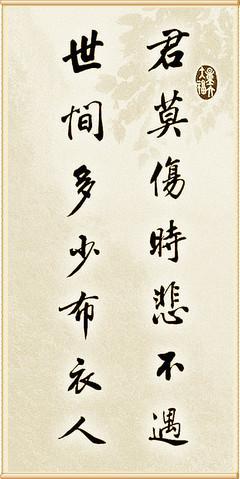 君莫傷時悲不遇
世間多少布衣人